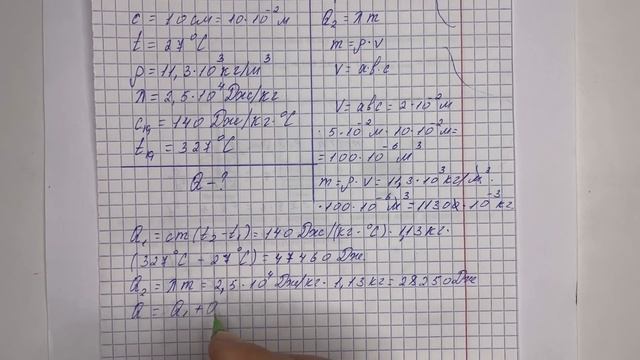 c = 10 см = 10·10⁻² м
t = 27°C
ρ = 11,3·10³ кг/м³
λ = 2,5·10⁴ Дж/кг
c₁₉ = 140 Дж/кг·°C
t₁₉ = 327°C
Q - ?
Q₂ = λm
m = ρ·v
v = a·b·c
v = abc = 2·10⁻² м
·5·10⁻² м·10·10⁻² м =
= 100·10⁻⁶ м³
m = ρ·v = 11,3·10³ кг/м³·
·100·10⁻⁶ м³ = 11300·10⁻³ кг
Q₁ = cm(t₂-t₁) = 140 Дж/(кг·°C)·1,13 кг·
(327°C - 27°C) = 47460 Дж.
Q₂ = λm = 2,5·10⁴ Дж/кг·1,13 кг = 28250 Дж
Q = Q₁ + Q